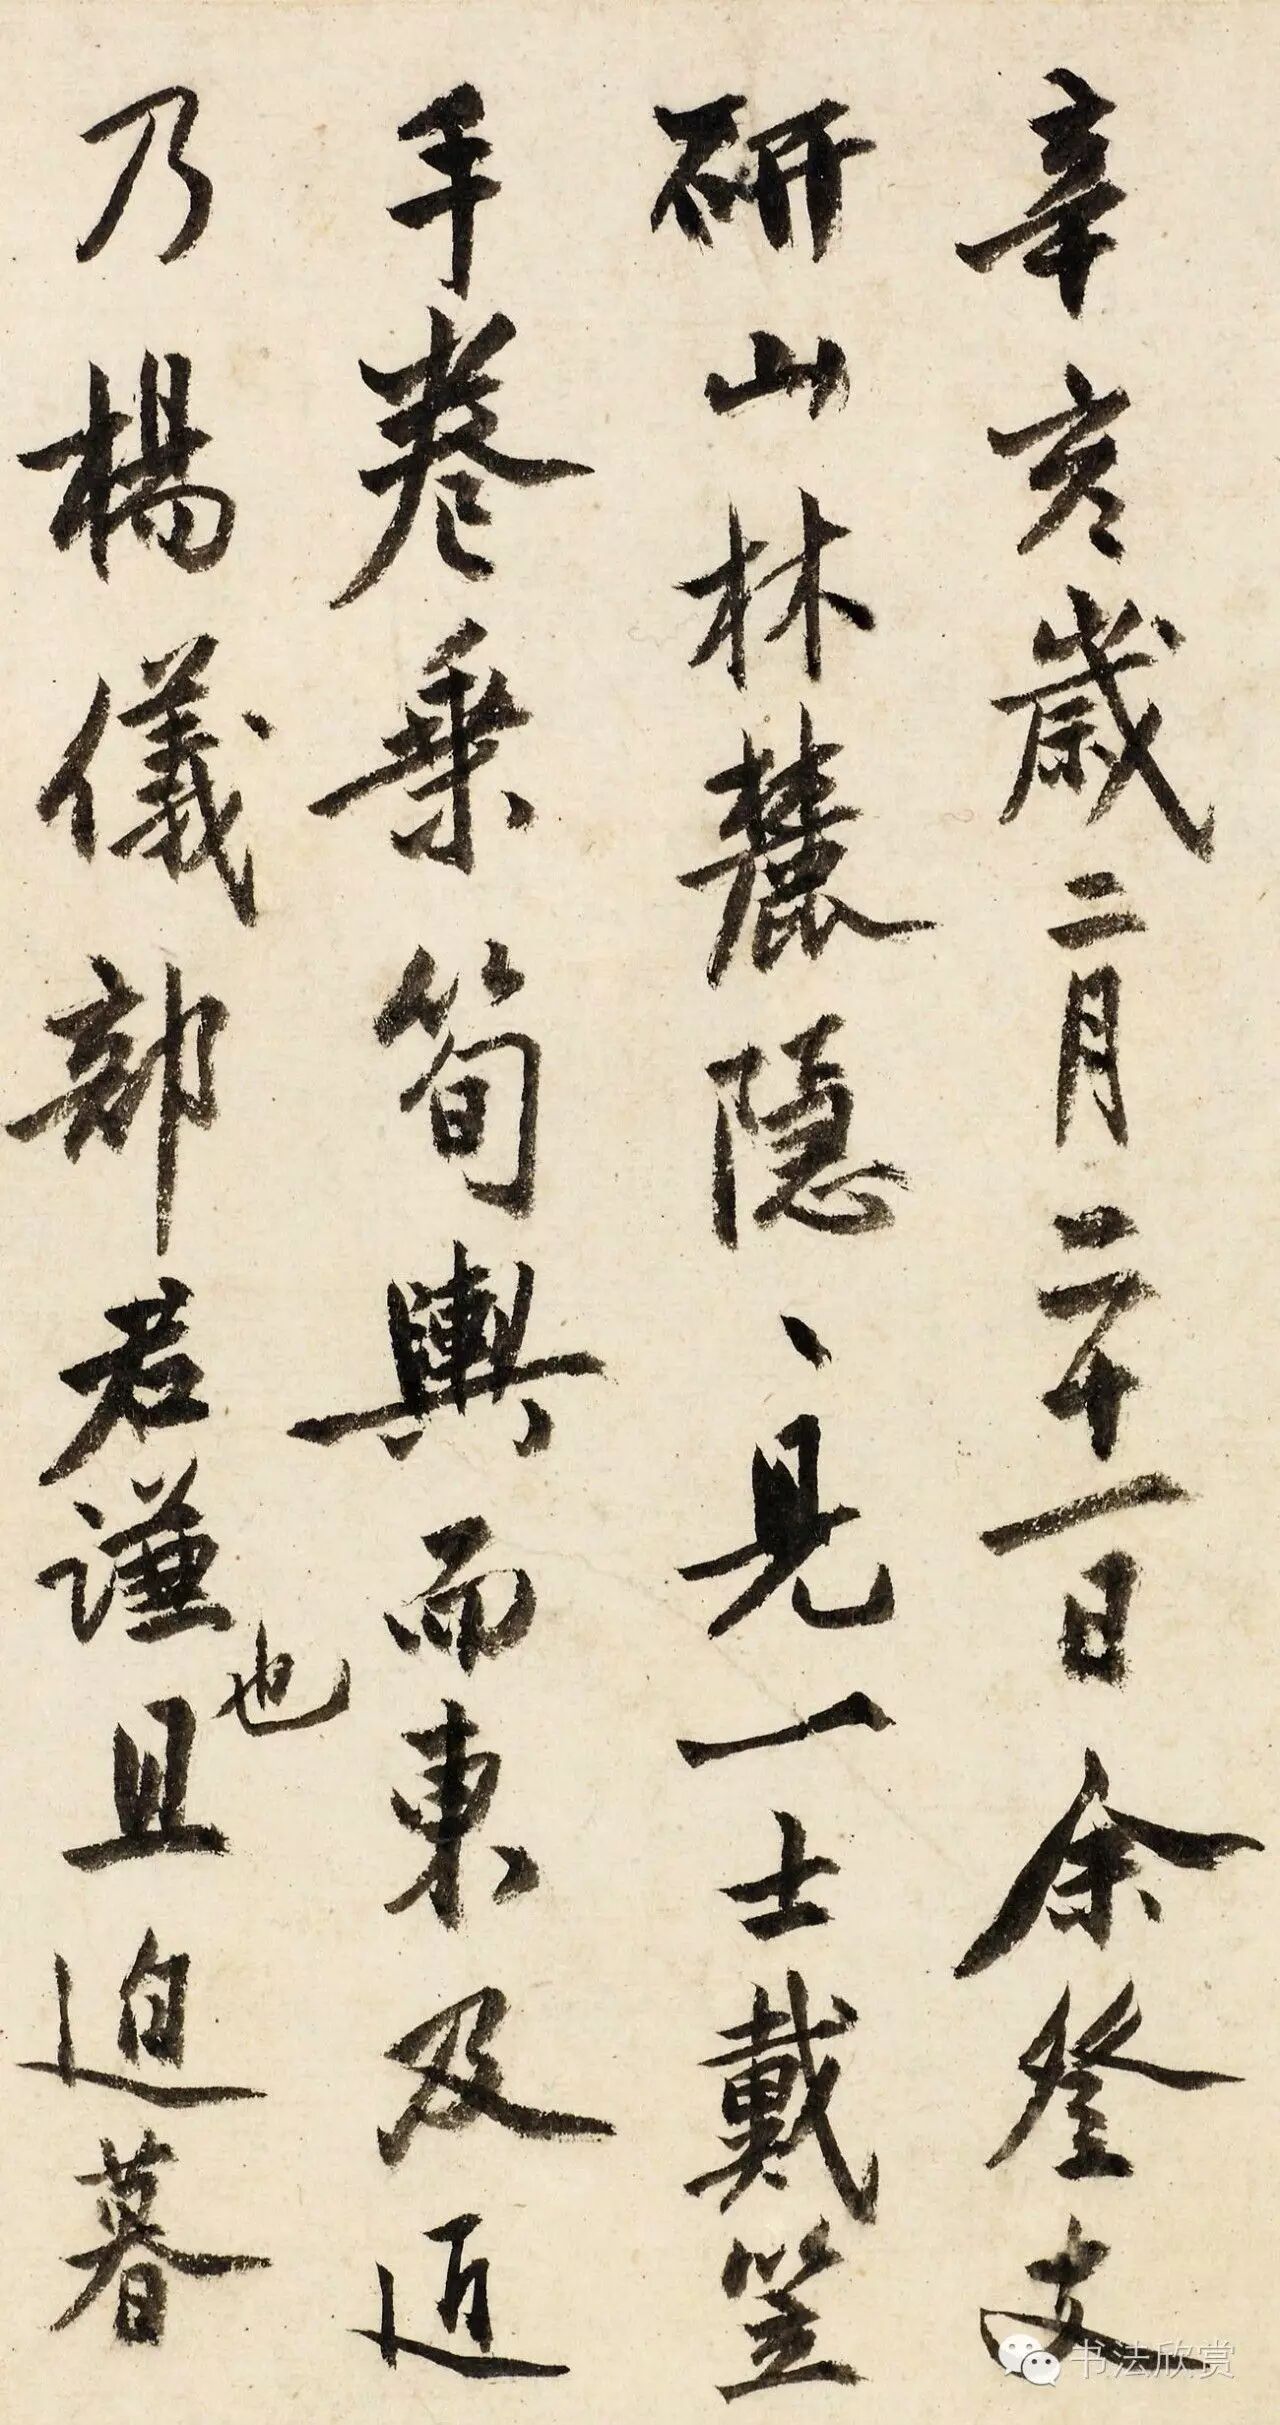 辛亥歲二月二十一日余登支
研山林麓隱、見一士戴笠
手卷乗筍輿而東及迫
乃楊儀部君謙也且迫暮
书法欣赏